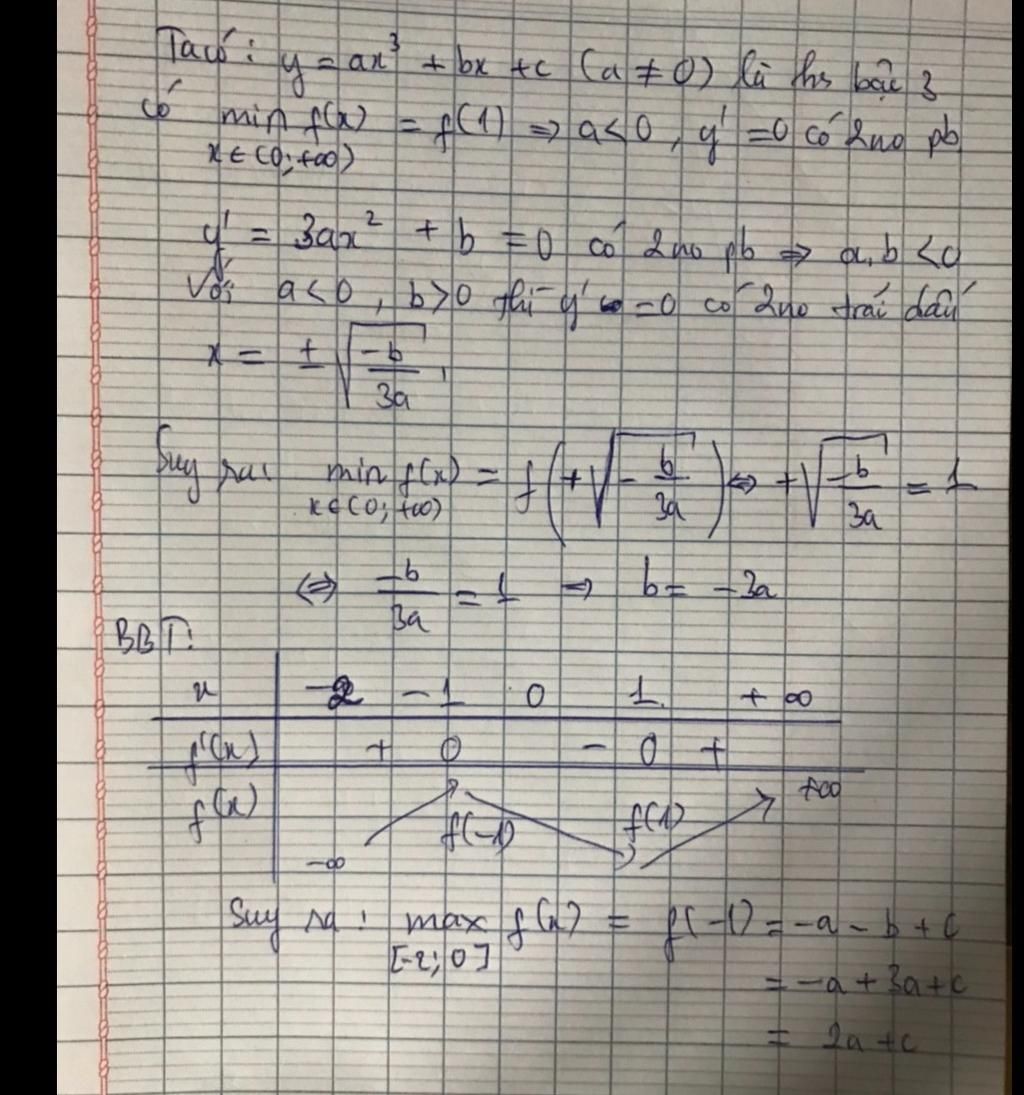 Ta có: y = ax³ + bx + c (a ≠ 0) là hs bậc 3
có min f(x) = f(1) ⇒ a<0, y' = 0 có 2 no pb
x ∈ (0; +∞)
y' = 3ax² + b = 0 có 2 no pb ⇒ a.b < 0
Với a<0, b>0 thì y' = 0 có 2no trái dấu
x = ± √(-b/3a),
Suy ra: min f(x) = f(+√(-b/3a)) ⇔ +√(-b/3a) = 1
x ∈ (0; +∞)
⇔ -b/3a = 1 ⇒ b = -3a
BBT:
x -2 -1 0 1 +∞
f'(x) + 0 - 0 +
f(x) -∞ f(-1) f(1) +∞
Suy ra: max f(x) = f(-1) = -a - b + c
[-2; 0]
= -a + 3a + c
= 2a + c